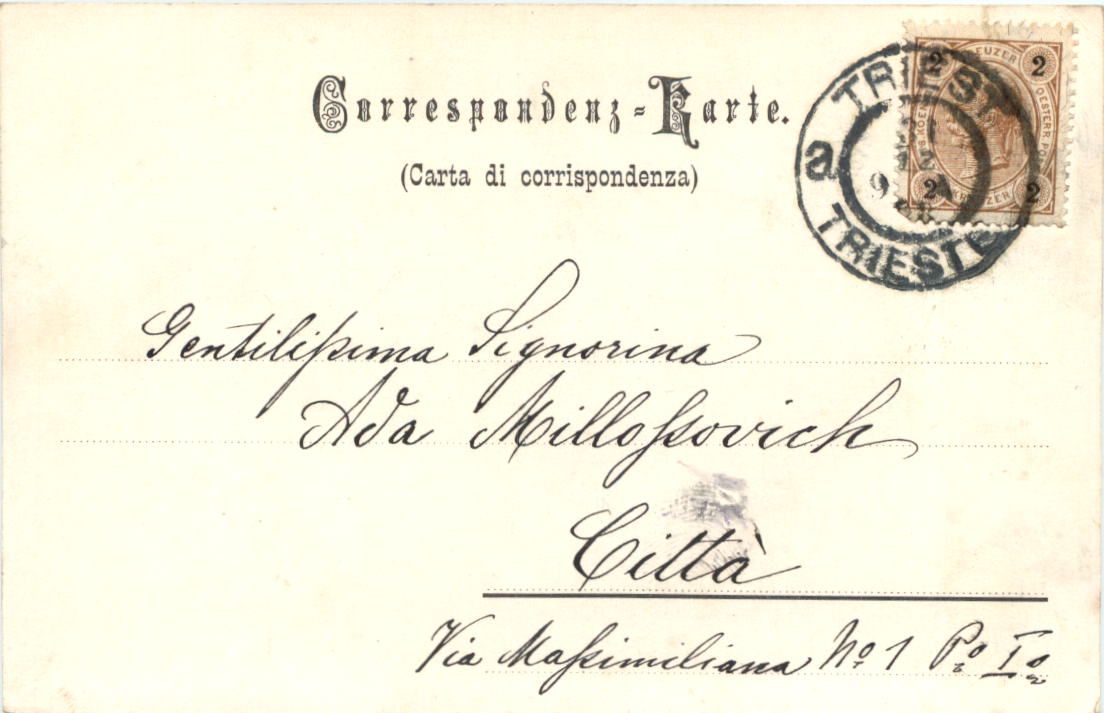 Correspondenz-Karte.
(Carta di corrispondenza)
TRIEST
a
TRIESTE
2 KREUZER 2
OESTERR. PO
2 KREUZER 2
Gentilißima Signorina
Ada Milloßovich
Città
Via Maßimiliana No 1 Po Io